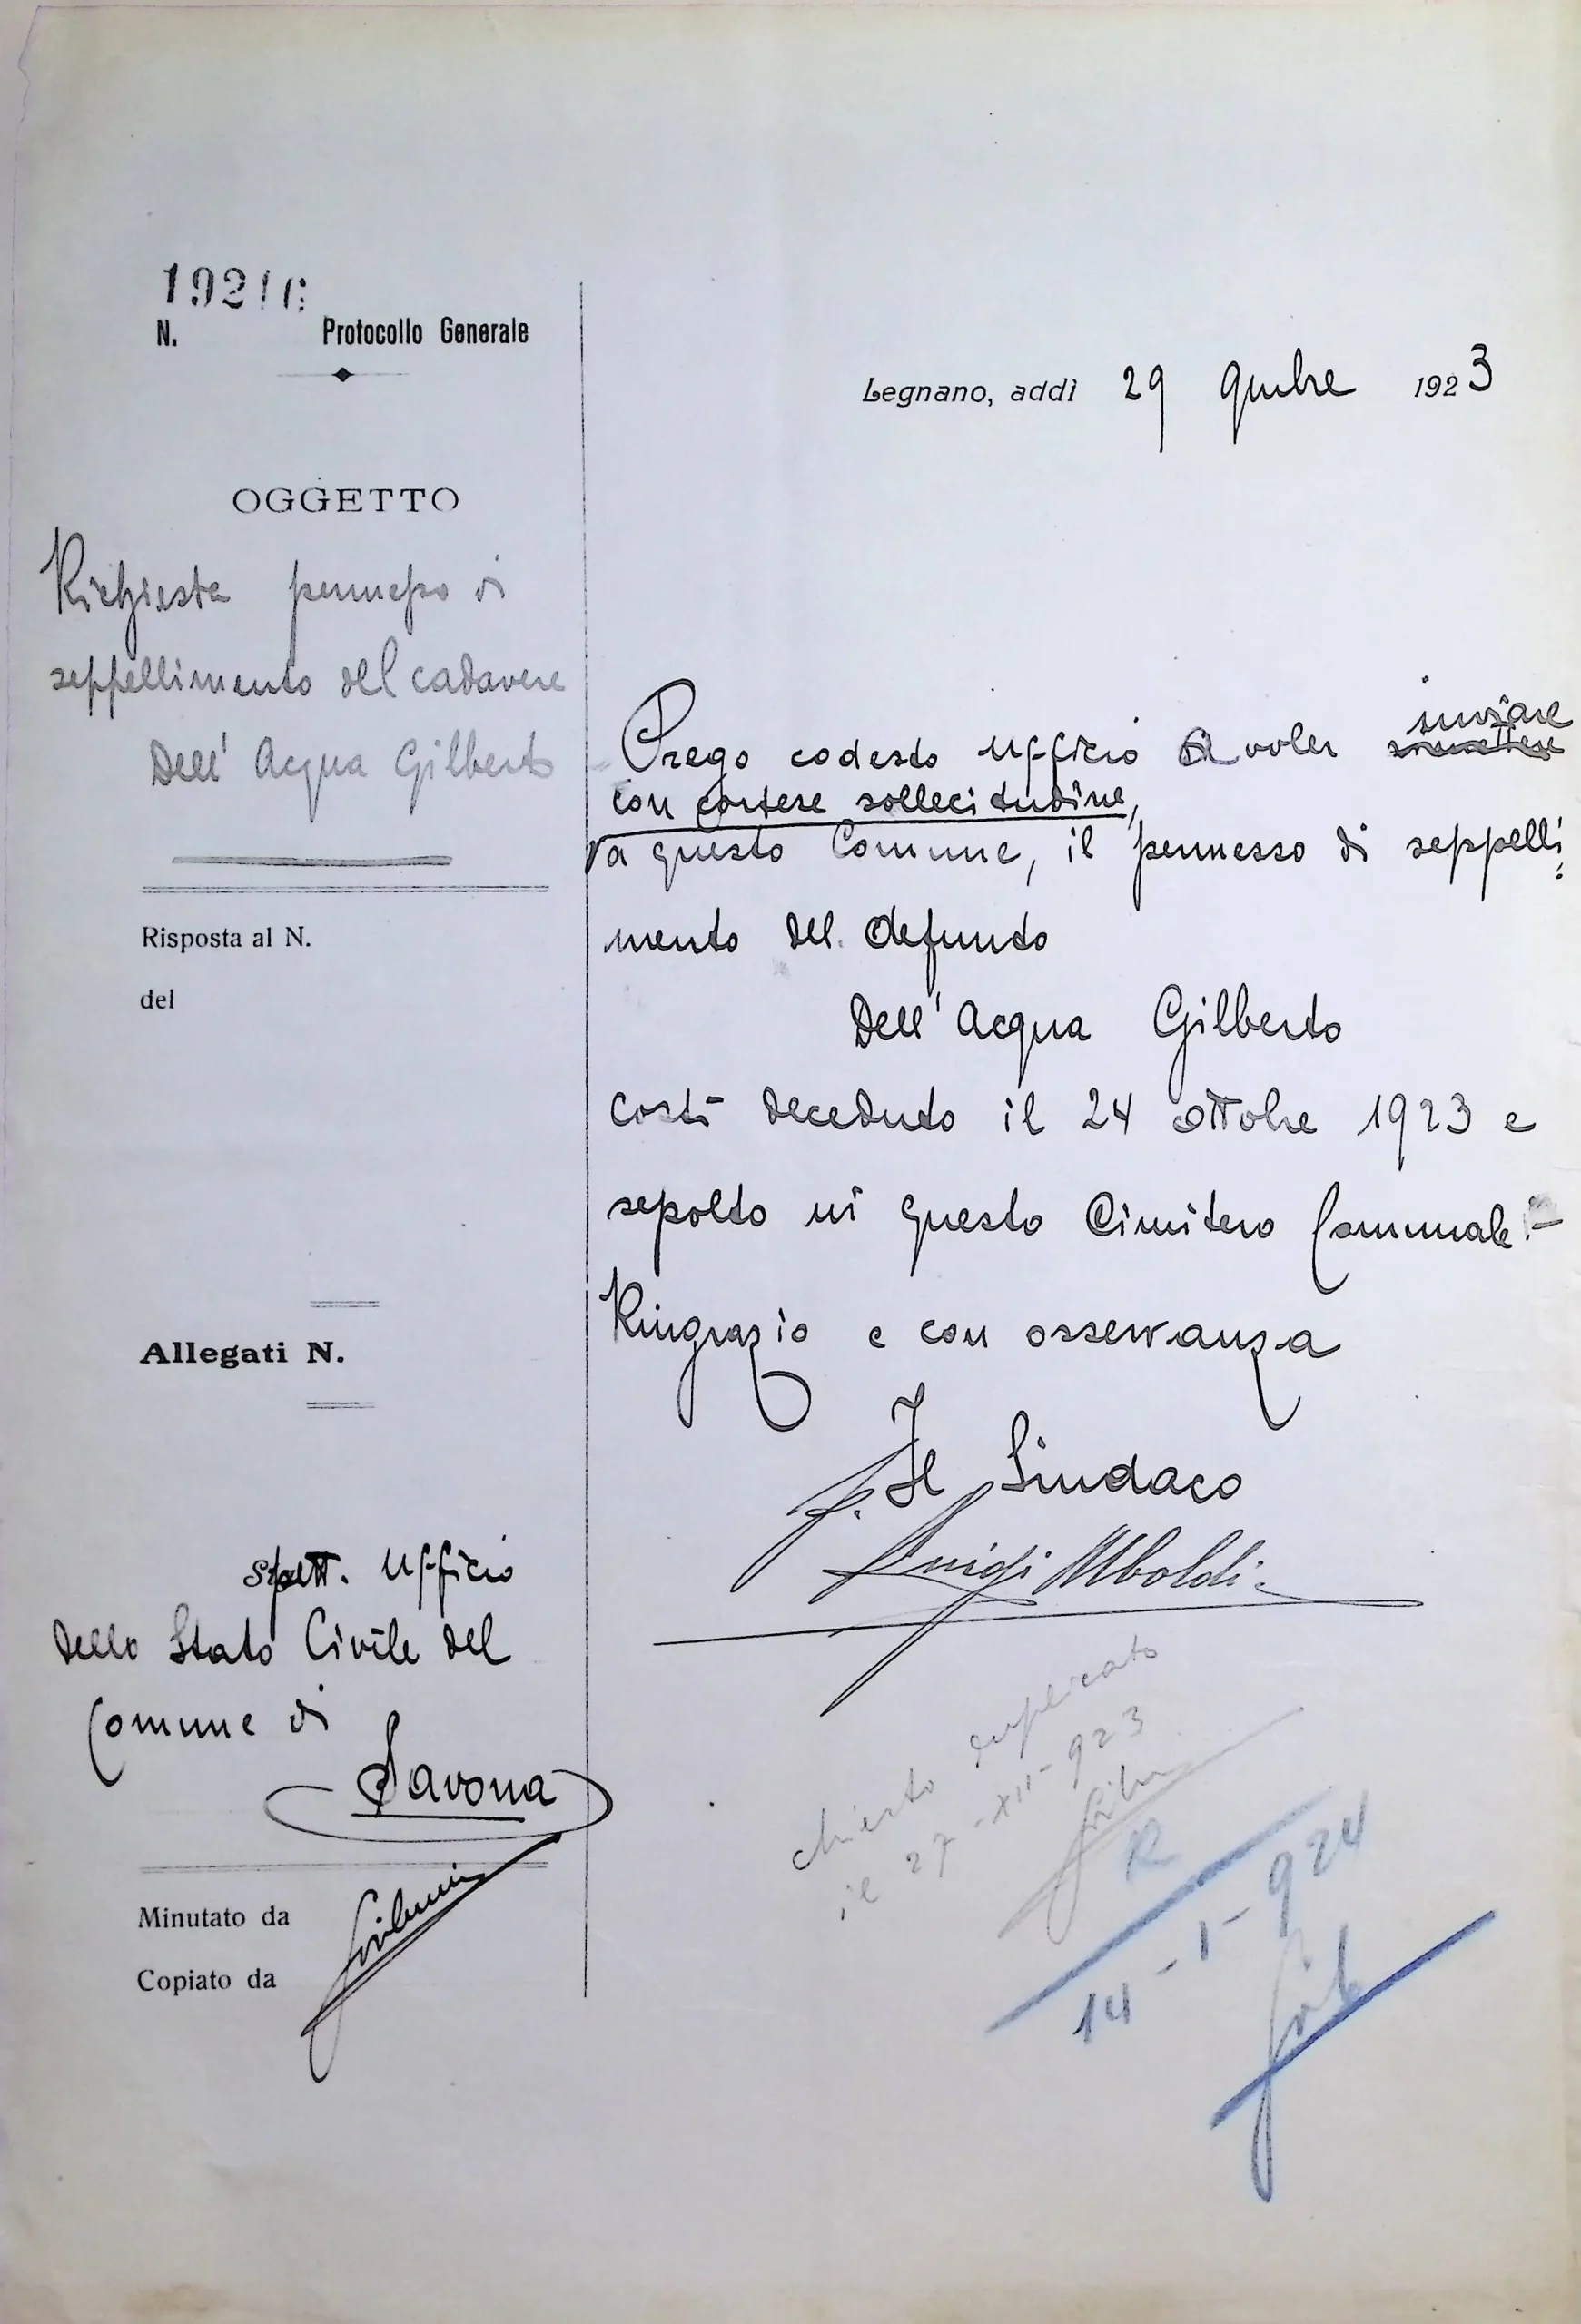 N. Protocollo Generale
OGGETTO
Richiesta permesso di
seppellimento del cadavere
Dell' Acqua Gilberto
Risposta al N.
del
Allegati N.
Spett. Ufficio
dello Stato Civile del
Comune di
Savona
Minutato da
Copiato da
Legnano, addì 29 9mbre 1923
inviare
Prego codesto Ufficio a voler
con cortese sollecitudine,
a questo Comune, il permesso di seppelli
mento del defunto
Dell' Acqua Gilberto
costì deceduto il 24 ottobre 1923 e
sepolto in questo Cimitero Comunale.-
Ringrazio e con osservanza
f. Il Sindaco
Luigi
chiesto duplicato
il 27-XII-923
R
14-1-924